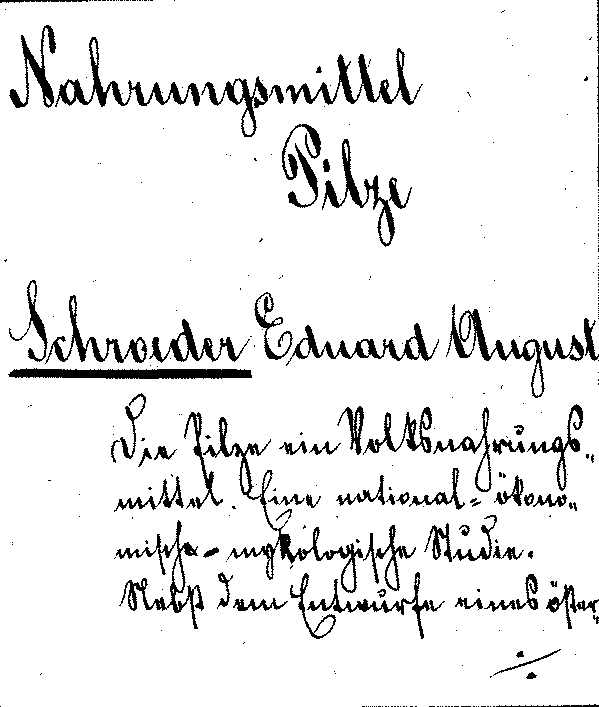 Nahrungsmittel
Pilze
Schroeder Eduard August
Die Pilze ein Volksnahrungs-
mittel. Eine national-ökono-
mische-mykologische Studie.
Nebst dem Entwurfe eines öster-
÷